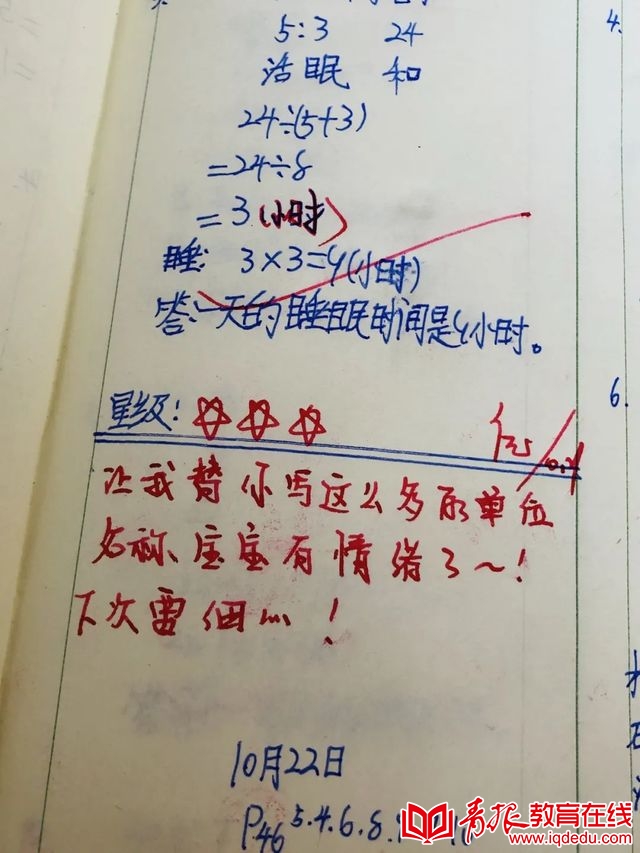 4.
5:3 24
活 眠 和
24÷(5+3)
=24÷8
=3(小时)
睡: 3×3=9(小时)
答:一天的睡眠时间是9小时。
星级:☆☆☆
优
6.
让我替你写这么多的单位
名称、宝宝有情绪了~!
下次要细心!
10月22日
P46 5.4.6.8.
青报教育在线
www.iqdedu.com